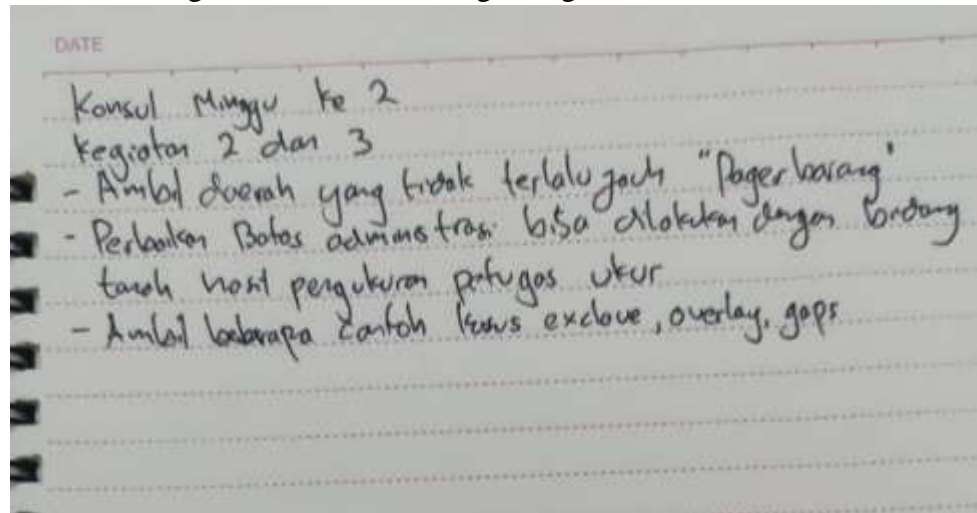 DATE
Konsul Minggu ke 2
kegiatan 2 dan 3
- Ambil daerah yang tidak terlalu jauh "Pagerbarang"
- Perbaikan Batas administrasi bisa dilakukan dengan bidang
tanah hasil pengukuran petugas ukur
- Ambil beberapa contoh kasus exclave, overlay, gaps